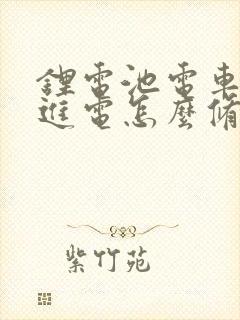 鋰電池電車
進電怎麼脩
紫竹苑